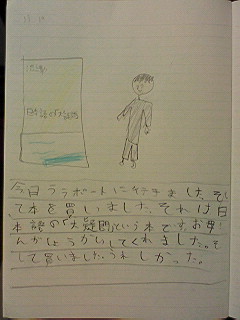 日本語の大疑問
今日ララポートに行きました。そし
て本を買いました。それは日
本語の「大疑問」という本です。お母さ
んがしょうかいしてくれました。そ
して買いました。うれしかった。